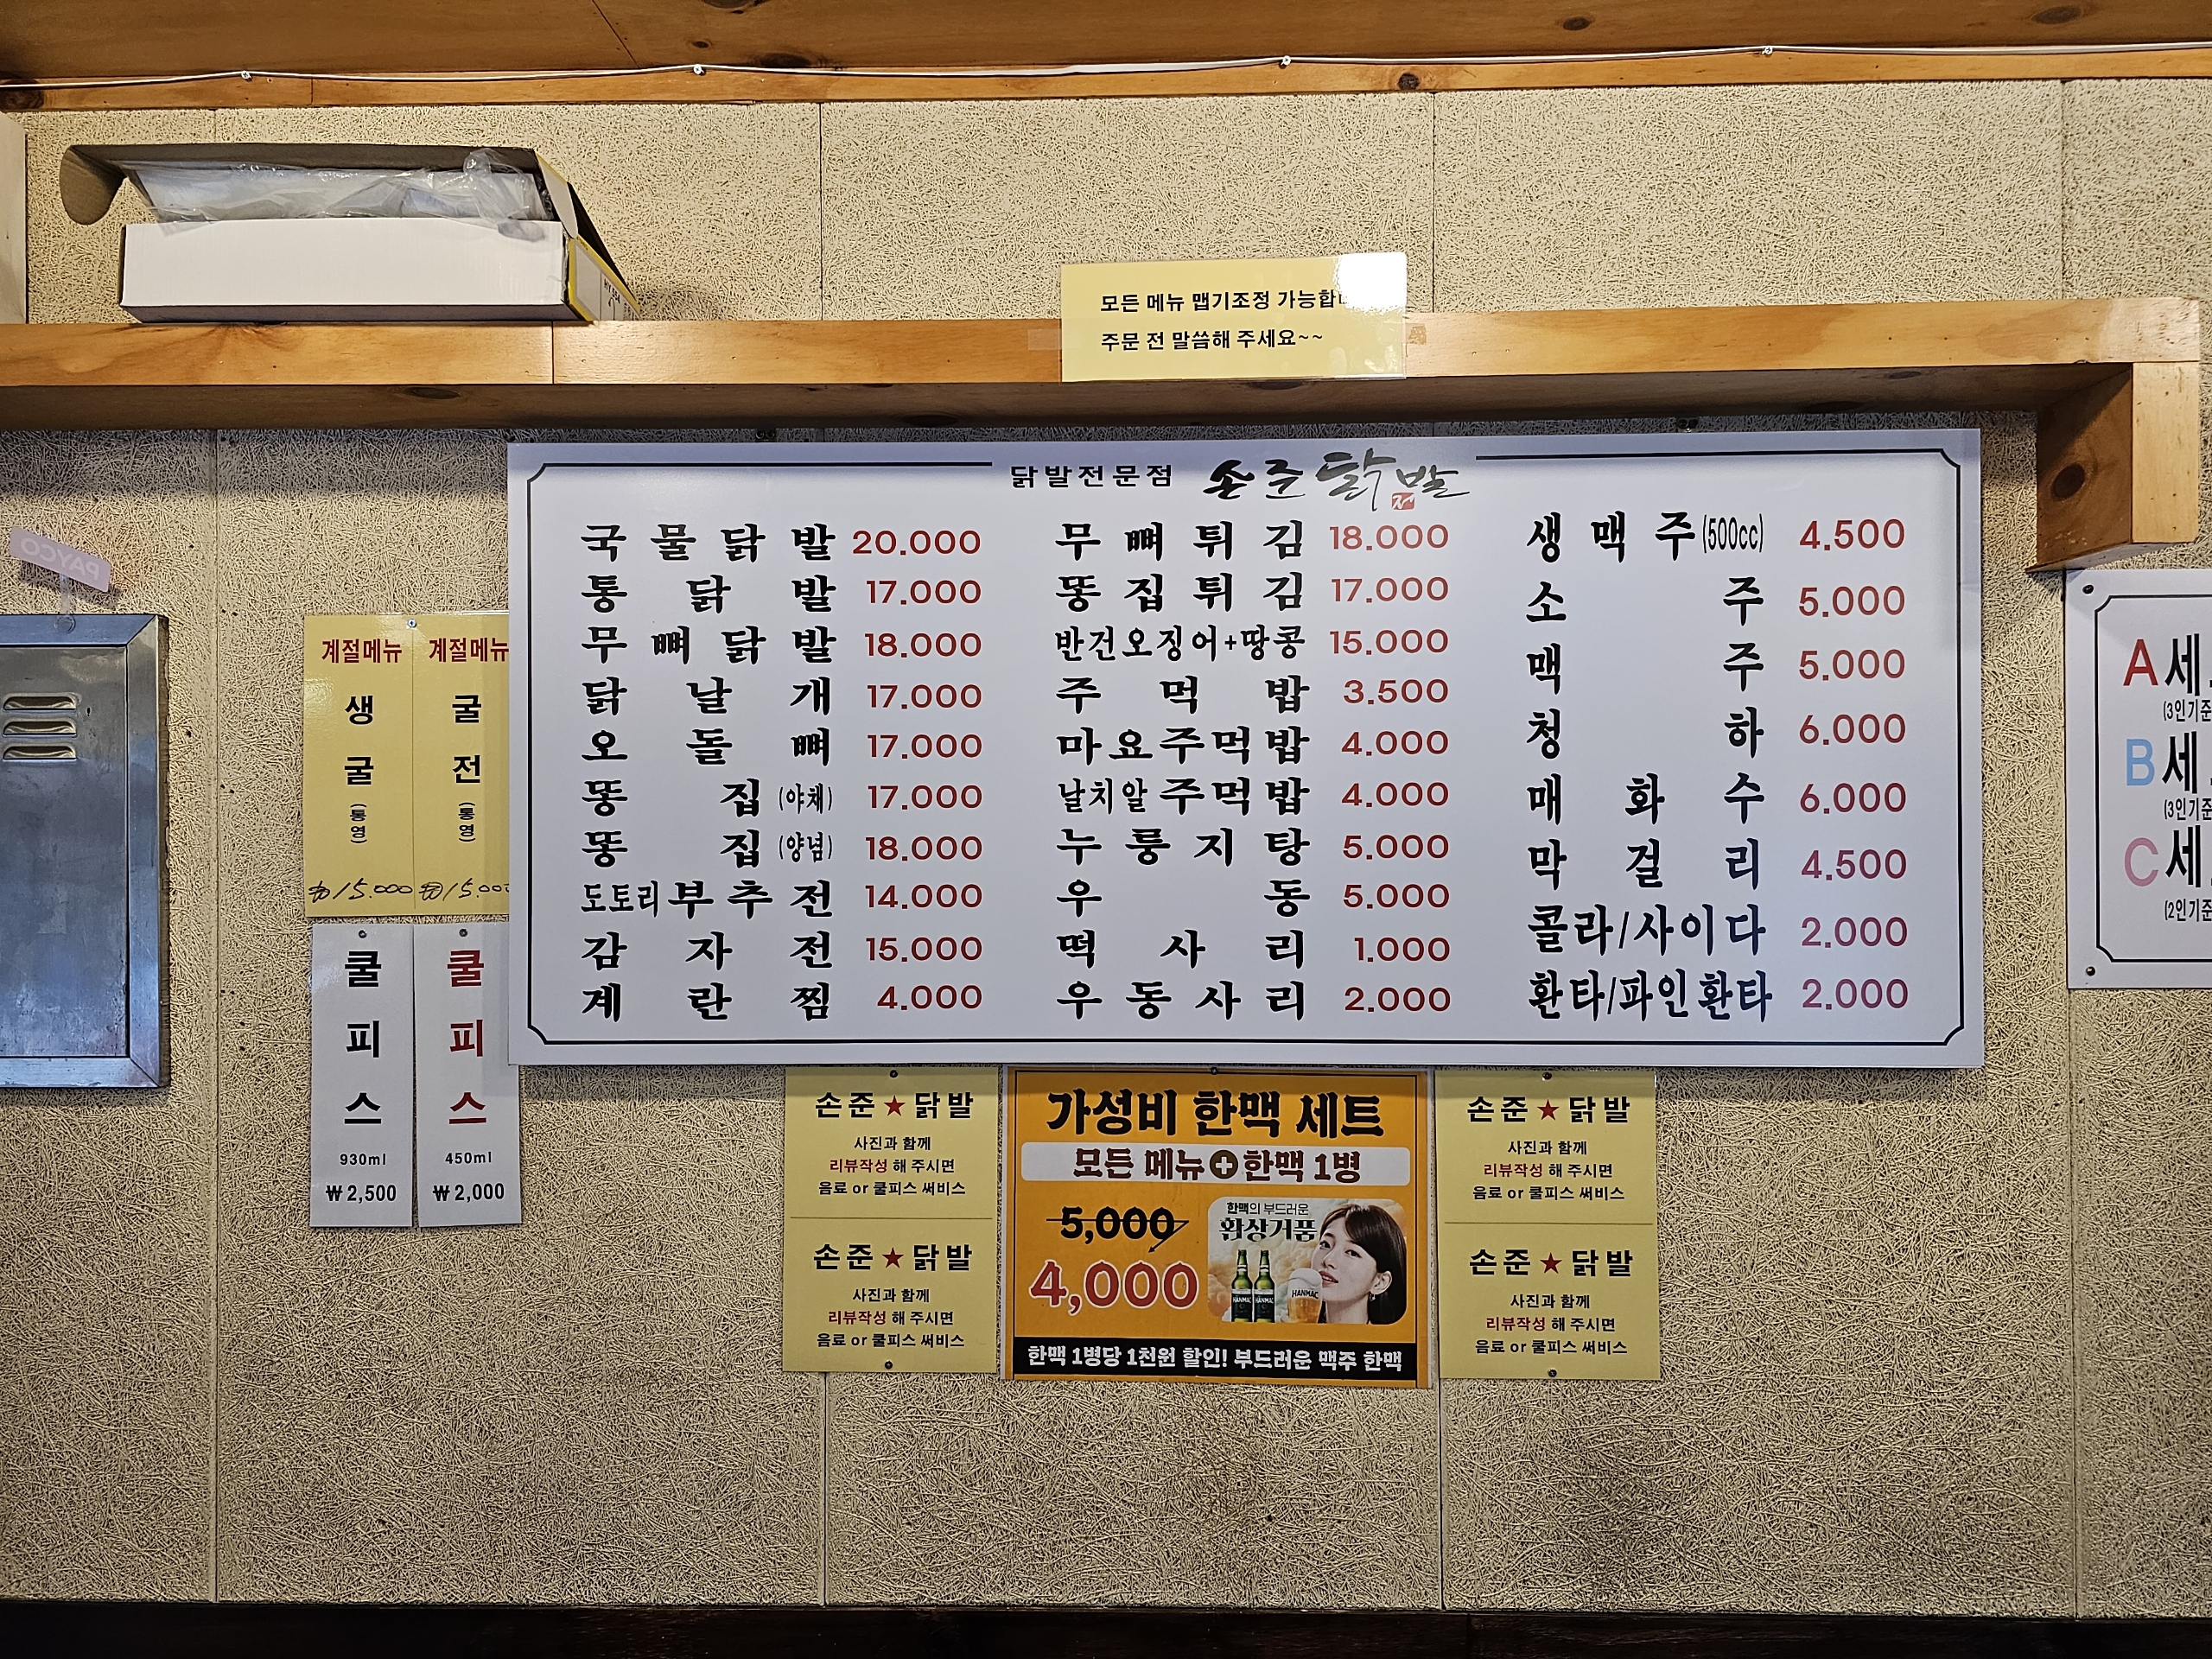 모든 메뉴 맵기조정 가능합
주문 전 말씀해 주세요~~
닭발전문점 손준닭발
국물닭발 20.000
통닭발 17.000
무뼈닭발 18.000
닭날개 17.000
오돌뼈 17.000
똥집(야채) 17.000
똥집(양념) 18.000
도토리부추전 14.000
감자전 15.000
계란찜 4.000
무뼈튀김 18.000
똥집튀김 17.000
반건오징어+땅콩 15.000
주먹밥 3.500
마요주먹밥 4.000
날치알주먹밥 4.000
누룽지탕 5.000
우동 5.000
떡사리 1.000
우동사리 2.000
생맥주(500cc) 4.500
소주 5.000
맥주 5.000
청하 6.000
매화수 6.000
막걸리 4.500
콜라/사이다 2.000
환타/파인환타 2.000
PAYCO
계절메뉴
생굴
(통영)
₩15.000
계절메뉴
굴전
(통영)
₩15.00
쿨피스
930ml
₩2,500
쿨피스
450ml
₩2,000
A세
(3인기준
B세
(3인기
C세
(2인기준
손준★닭발
사진과 함께
리뷰작성 해 주시면
음료 or 쿨피스 써비스
손준★닭발
사진과 함께
리뷰작성 해 주시면
음료 or 쿨피스 써비스
가성비 한맥 세트
모든 메뉴+한맥 1병
5,000
4,000
한맥의 부드러운
환상거품
HANMAC
HANMAC
HANMAC
한맥 1병당 1천원 할인! 부드러운 맥주 한맥
손준★닭발
사진과 함께
리뷰작성 해 주시면
음료 or 쿨피스 써비스
손준★닭발
사진과 함께
리뷰작성 해 주시면
음료 or 쿨피스 써비스